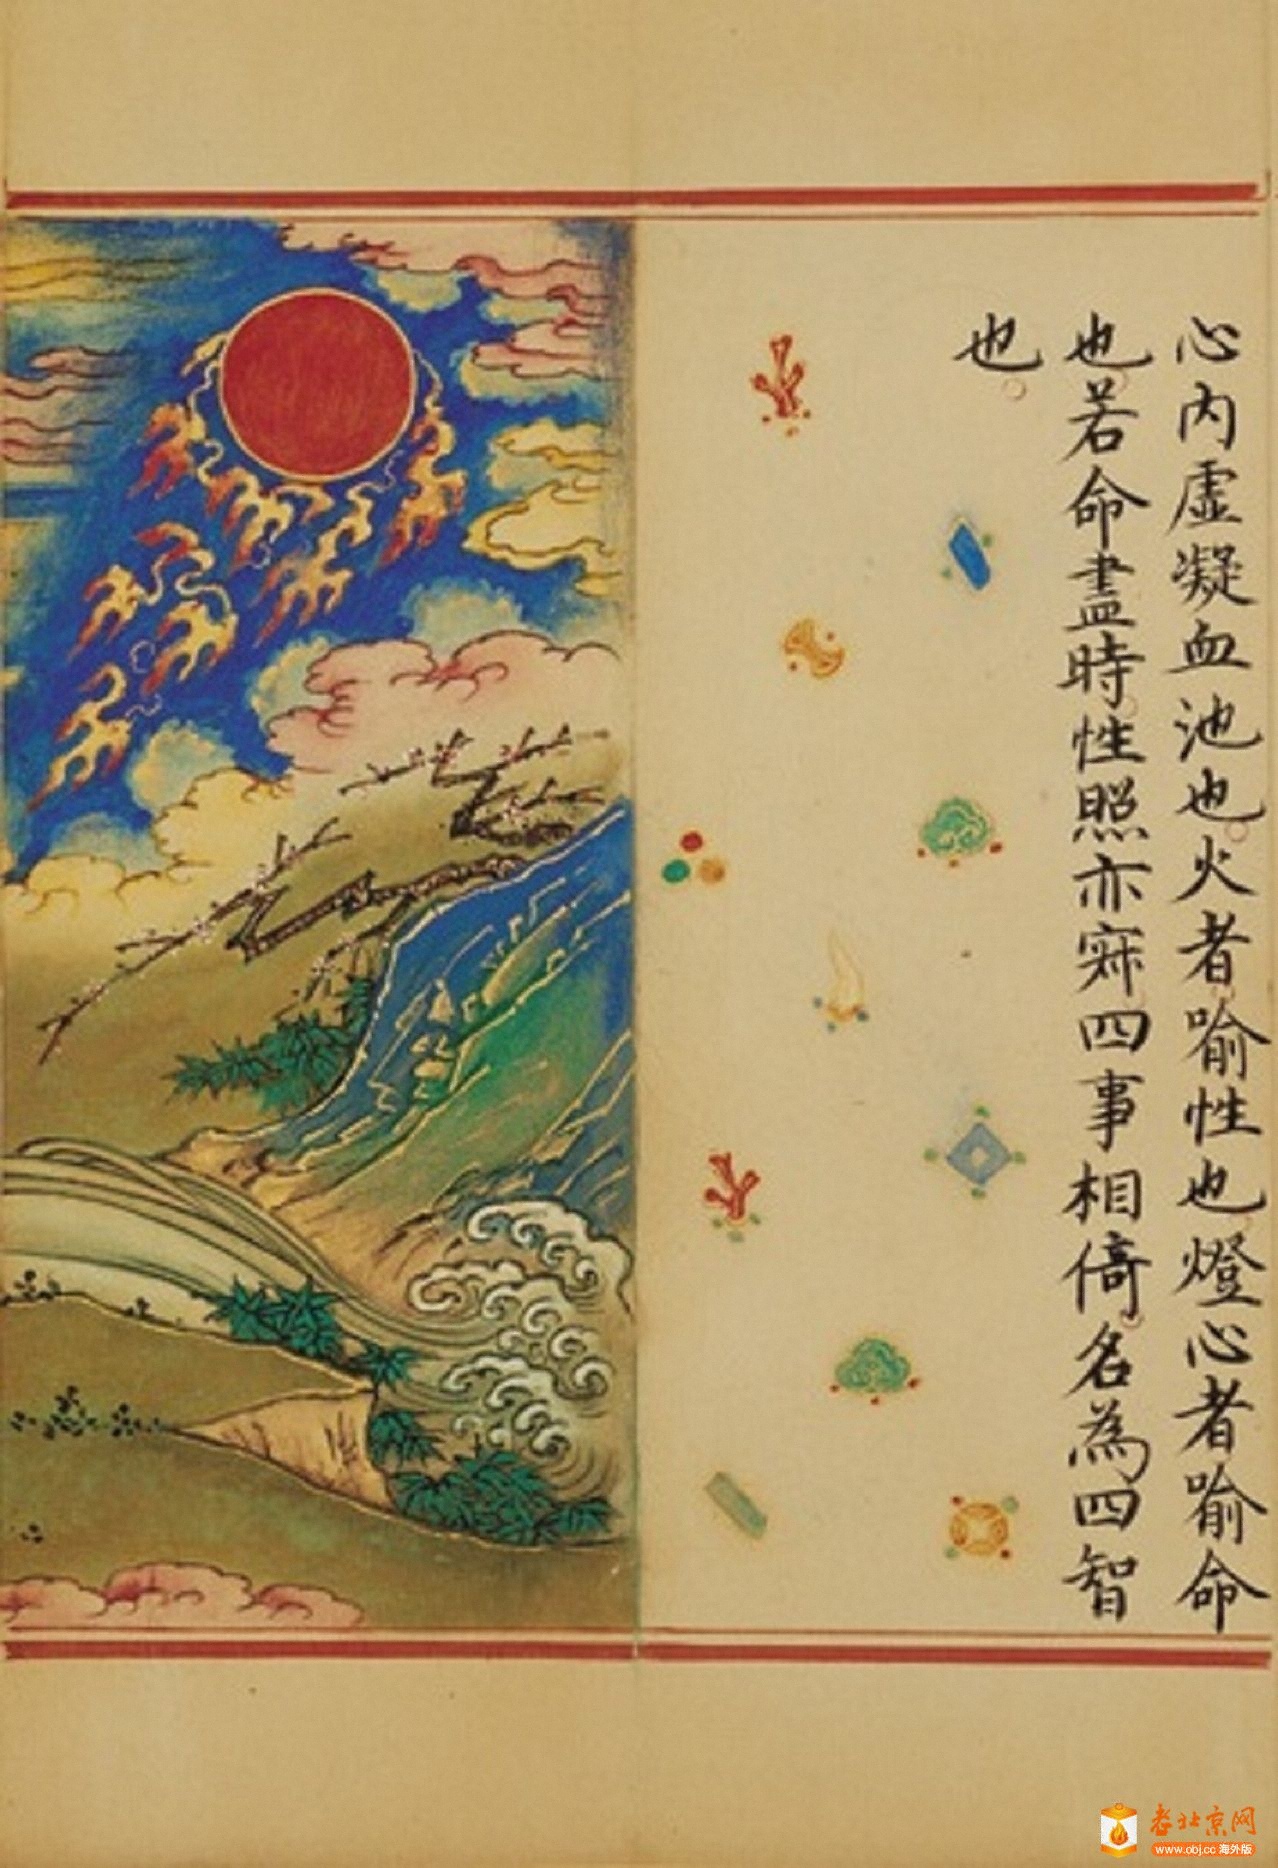 心内虛凝血池也火者喻性也燈心者喻命
也若命盡時性照亦寂四事相倚名為四智
也
老北京网
www.obj.cc 海外版